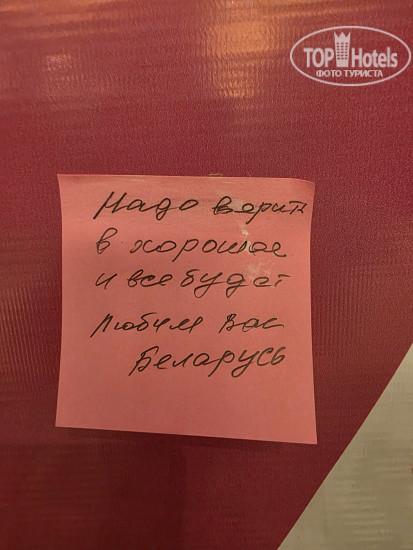 TOP Hotels
ФОТО ТУРИСТА
Надо верить
в хорошее
и все будет
Любим Вас
Беларусь